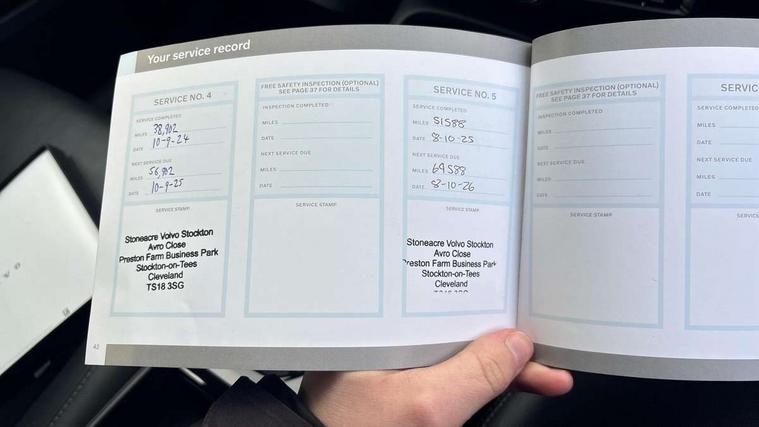 Your service record
SERVICE NO. 4
SERVICE COMPLETED
MILES 38,902
DATE 10-9-24
NEXT SERVICE DUE
MILES 56,902
DATE 10-9-25
SERVICE STAMP
Stoneacre Volvo Stockton
Avro Close
Preston Farm Business Park
Stockton-on-Tees
Cleveland
TS18 3SG
42
FREE SAFETY INSPECTION (OPTIONAL)
SEE PAGE 37 FOR DETAILS
INSPECTION COMPLETED
MILES
DATE
NEXT SERVICE DUE
MILES
DATE
SERVICE STAMP
SERVICE NO. 5
SERVICE COMPLETED
MILES 51588
DATE 8-10-25
NEXT SERVICE DUE
MILES 69588
DATE 8-10-26
SERVICE STAMP
Stoneacre Volvo Stockton
Avro Close
Preston Farm Business Park
Stockton-on-Tees
Cleveland
FREE SAFETY INSPECTION (OPTIONAL)
SEE PAGE 37 FOR DETAILS
INSPECTION COMPLETED
MILES
DATE
NEXT SERVICE DUE
MILES
DATE
SERVICE STAMP
SERVIC
SERVICE COMPLETED
MILES
DATE
NEXT SERVICE DUE
MILES
DATE
SERVICE